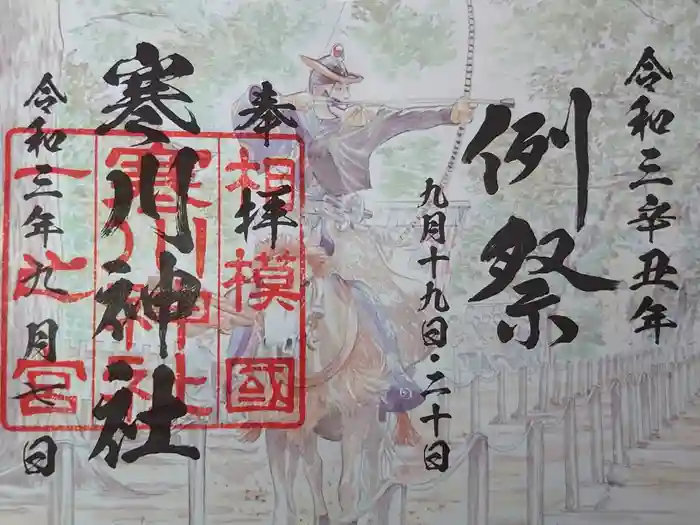 令和三辛丑年
例祭
九月十九日・二十日
奉拝
寒川神社
令和三年九月七日
相模國
寒川神社
一之宮